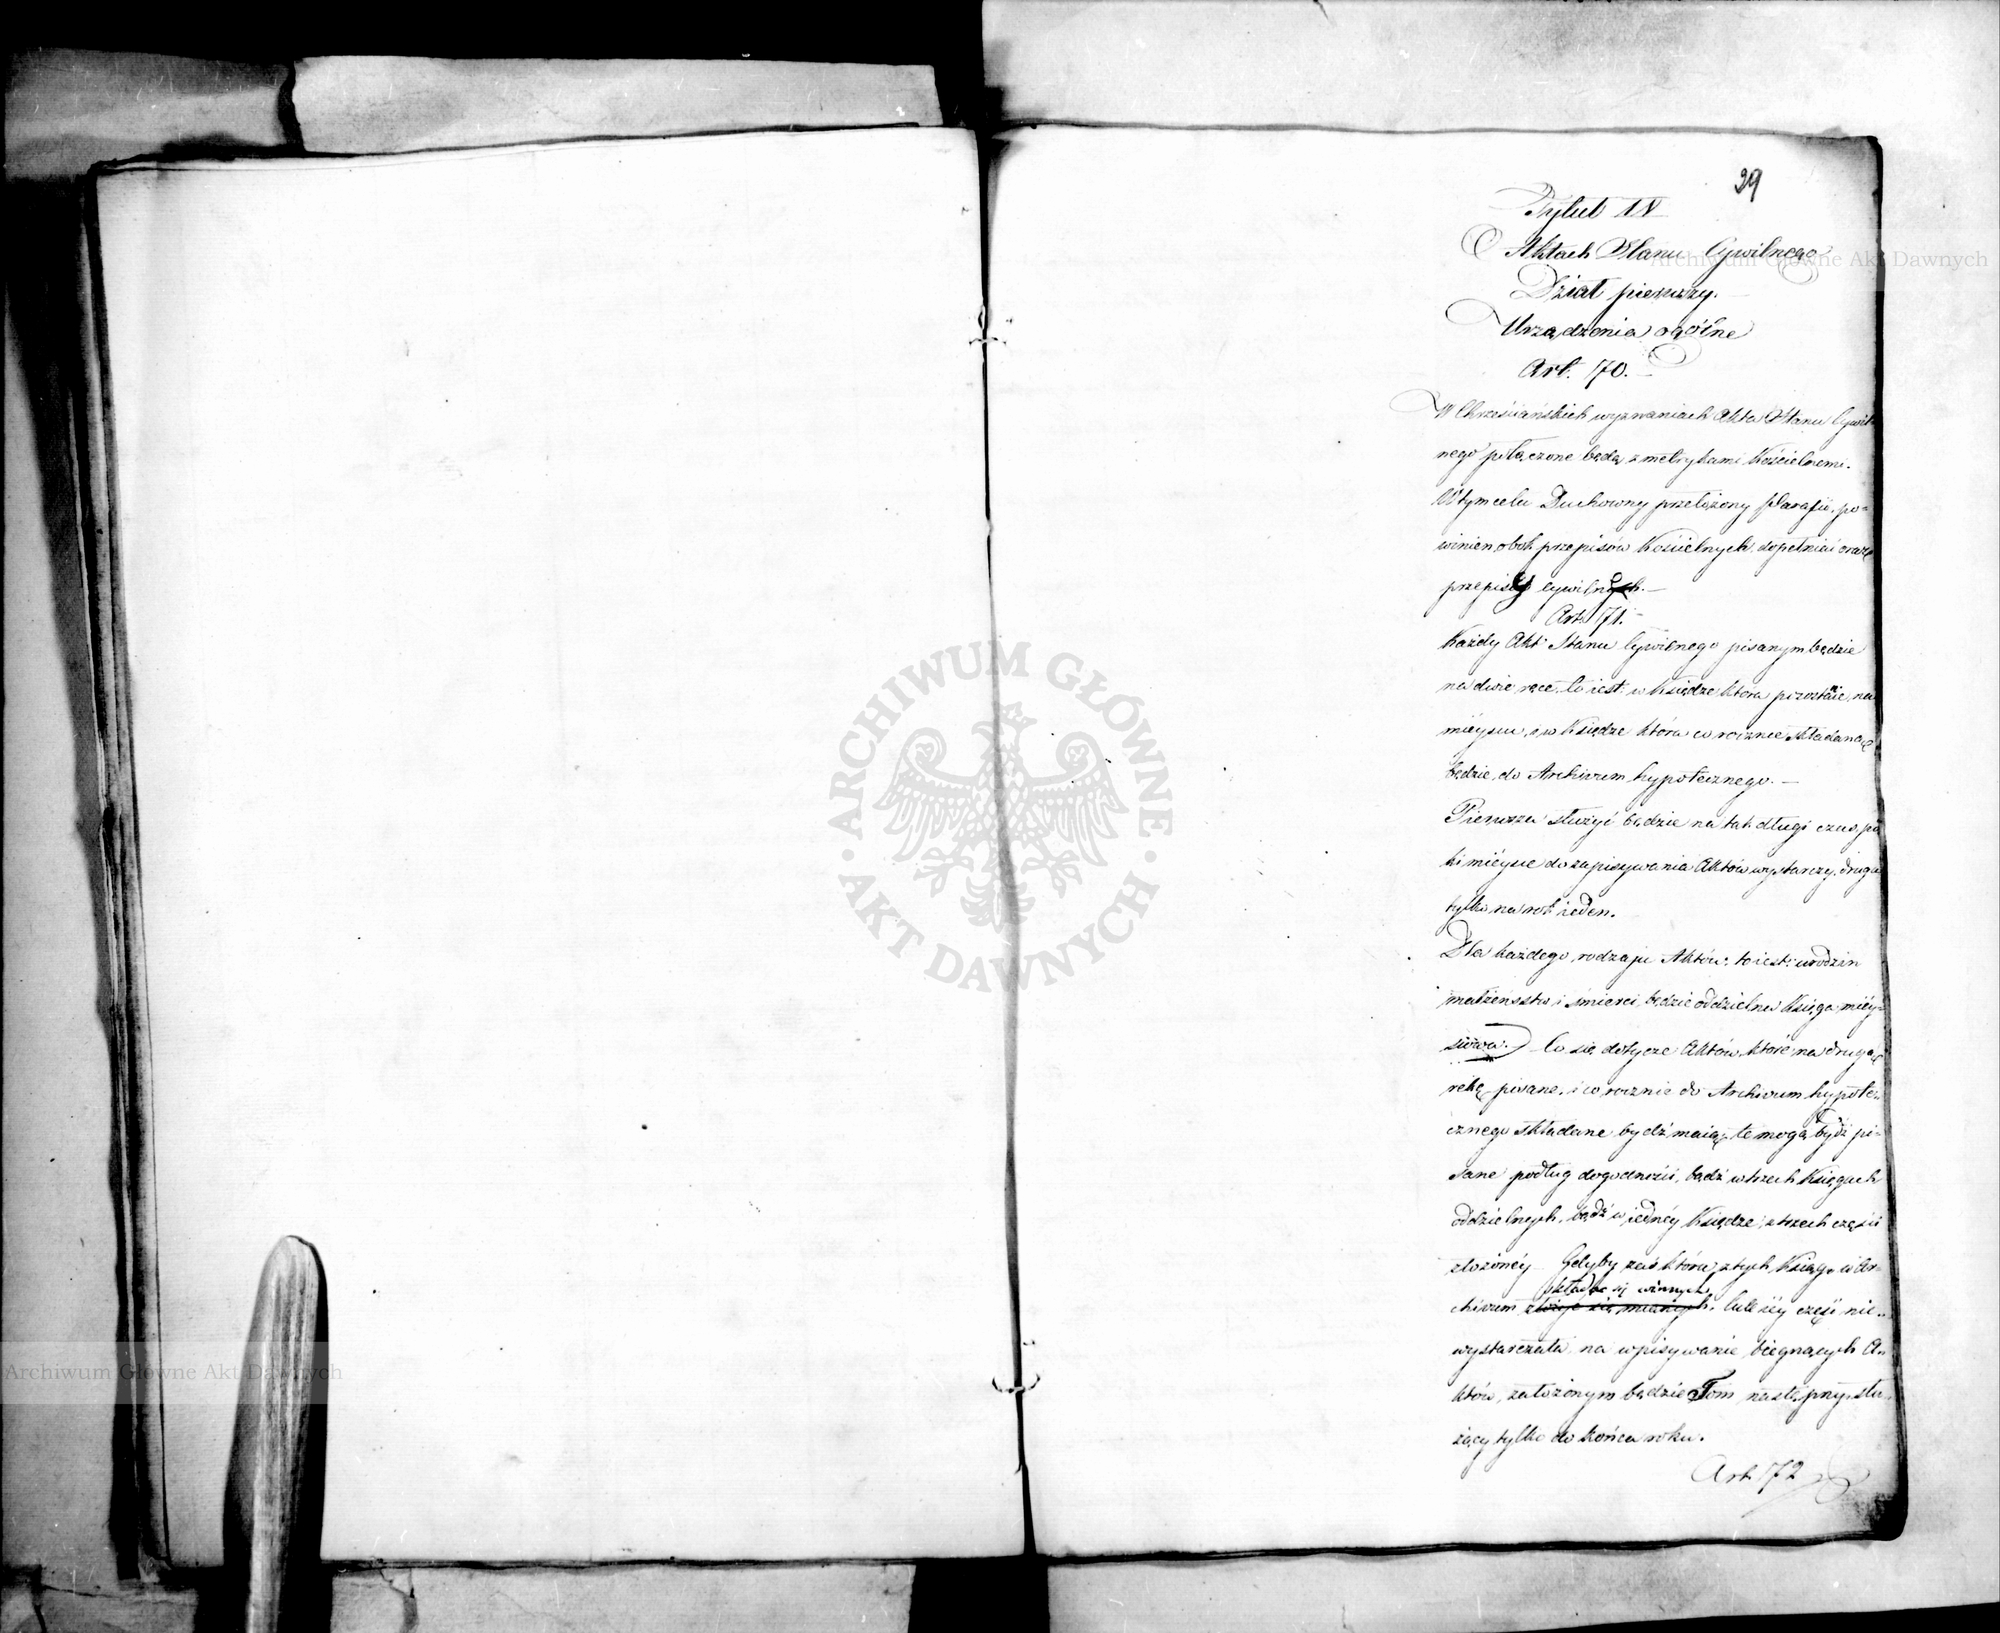 29
Tytuł IV
O Aktach Stanu Cywilnego
Dział pierwszy.
Urządzenia ogólne
Art. 70.
W Chrześciańskich wyznaniach Akta Stanu Cywil-
nego połączone będą z metrykami Kościelnemi.
W tym celu Duchowny przełożony Parafii, po-
winien, obok przepisów Kościelnych, dopełniać oraz
przepisy cywilne.
Art. 71.
Każdy Akt Stanu Cywilnego pisanym będzie
na dwie ręce, to iest: w Księdze która pozostanie na
mieyscu, i w Księdze która corocznie składaną
będzie do Archivum hypotecznego.
Pierwsza służyć będzie na tak długi czas, pó
ki mieysce do zapisywania Aktów wystarczy, druga
tylko na rok ieden.
Dla każdego rodzaju Aktów: to iest: urodzin
małżeństw i śmierci, będzie oddzielna Księga miey-
scowa. Co się dotycze Aktów, które na drugą
rękę pisane, i corocznie do Archivum hypote-
cznego składane bydź maią, te mogą bydź pi-
sane podług dogodności, bądź w trzech Księgach
oddzielnych, bądź w iednéy Księdze, z trzech części
złożonéy Gdyby zaś która z tych Ksiąg w Ar-
składać się winnych
chivum złożyć się mianych, lub iéy część nie-
wystarczała na wpisywanie biegnących A-
któw, założonym będzie Tom następny, słu-
żący tylko do końca roku.
Art. 72
Archiwum Główne Akt Dawnych
ARCHIWUM GŁÓWNE · AKT DAWNYCH ·
Archiwum Główne Akt Dawnych